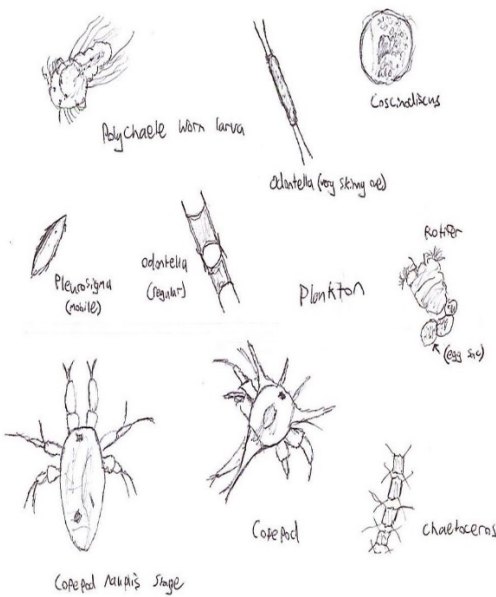 Polychaete worm larva
Coscinodiscus
Odontella (very skinny one)
Pleurosigma
(mobile)
Odontella
(regular)
Plankton
Rotifer
(egg sac)
Copepod nauplis stage
Copepod
Chaetoceros